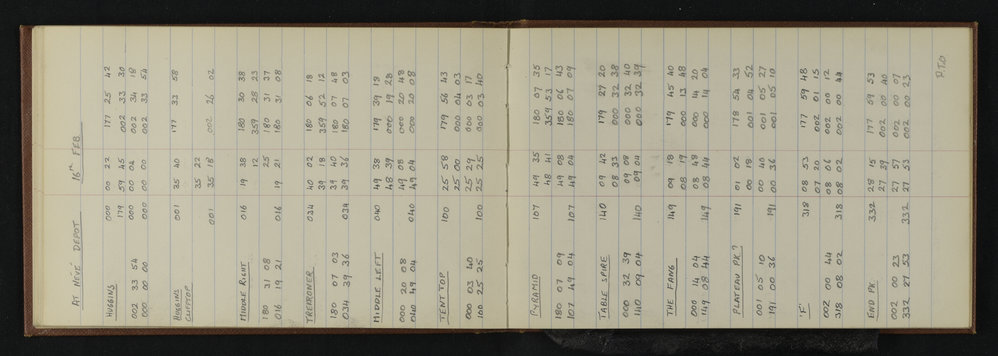 AT NÉVÉ DEPOT 16TH FEB
HUGGINS 000 00 22 177 25 42
179 59 45 002 33 30
002 33 54 000 00 04 002 34 18
000 00 00 000 00 00 002 33 54
HUGGINS 001 35 40 177 33 58
CLIFFTOP
35 22
001 35 18 002 26 02
MIDDLE RIGHT 016 19 38 180 30 38
12 359 28 23
180 31 08 25 180 31 37
016 19 21 016 19 21 180 31 08
034 40 02 180 06 18
39 18 359 52 12
180 07 03 39 40 180 07 48
034 39 36 034 39 36 180 07 03
MIDDLE LEFT 040 49 38 179 39 19
48 39 000 19 28
000 20 08 49 08 000 20 48
040 49 04 040 49 04 000 20 08
TENT TOP 100 25 58 179 56 43
25 00 000 04 03
000 03 40 25 29 000 03 17
100 25 25 100 25 25 000 03 40
PYRAMID 107 49 35 180 07 35
48 41 359 53 17
180 07 09 49 08 180 06 43
107 49 04 107 49 04 180 07 09
TABLE SPIRE 140 09 42 179 27 20
08 33 000 32 38
000 32 39 09 08 000 32 40
140 09 04 140 09 04 000 32 39
THE FANG 149 09 18 179 45 40
08 19 000 13 48
000 14 04 08 48 000 14 20
149 08 44 149 08 44 000 14 04
PLATEAU PK? 191 01 02 178 54 33
00 18 001 04 52
001 05 10 00 40 001 05 27
191 00 36 191 00 36 001 05 10
'F' 318 08 53 177 59 48
07 20 002 01 15
002 00 44 08 06 002 00 12
318 08 02 318 08 02 002 00 44
END PK 332 28 15 177 59 53
27 39 002 00 40
002 00 23 27 57 002 00 07
332 27 53 332 27 53 002 00 23
P.T.O